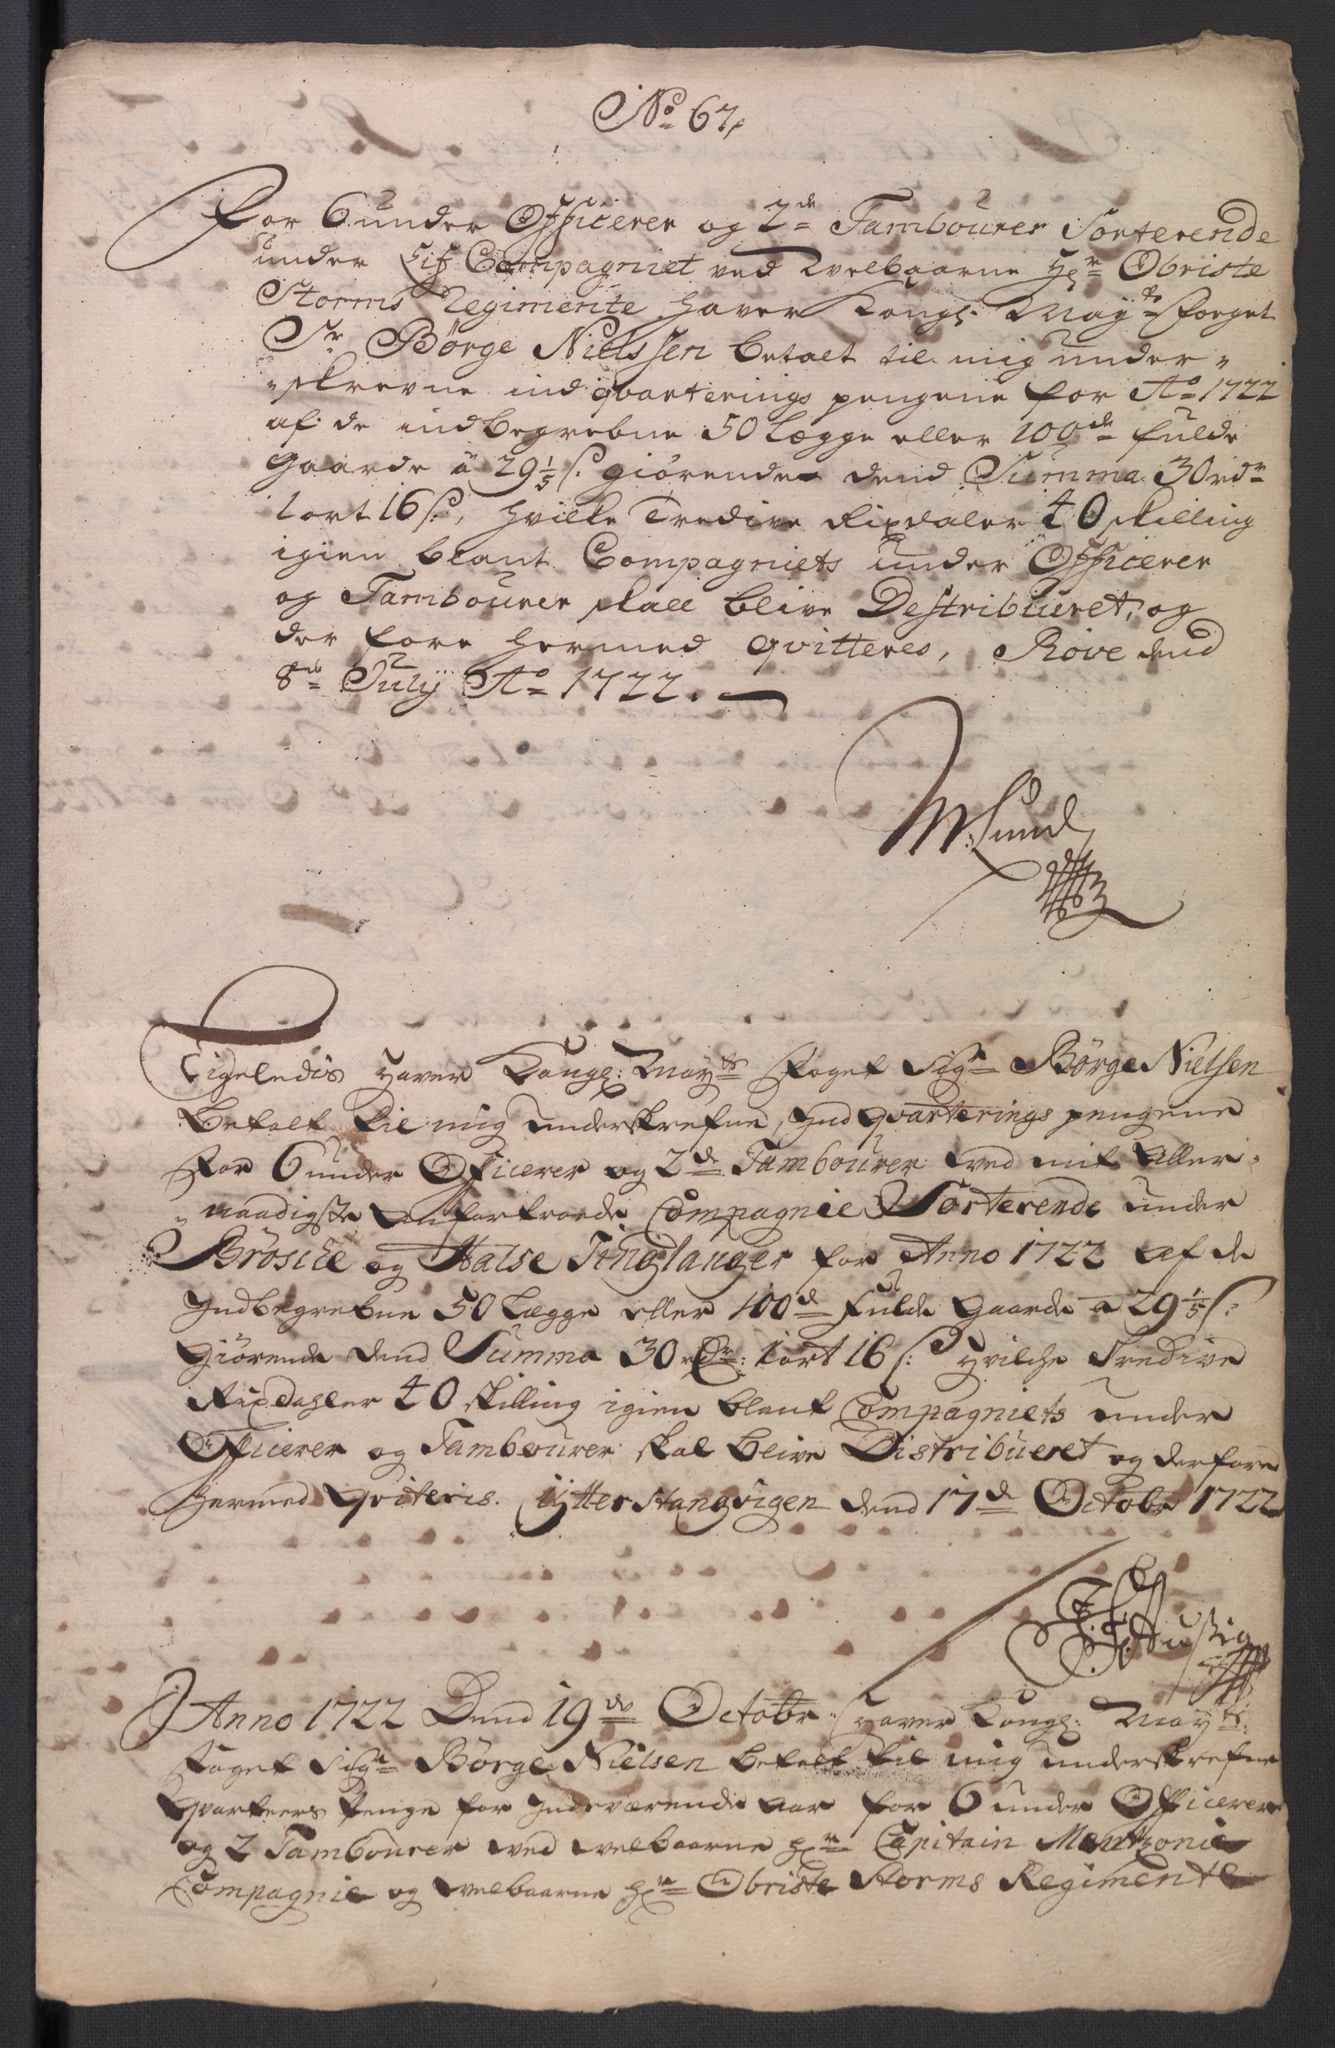 No 67.
For 6 under Officerer og 2de Tambourer Sorterende
under Lif Compagniet ved Welbaarne Hr Obriste
Storms Regimente, haver Kongl: Mayts Foeget
Sr Børge Nielssen betalt til mig under-
-skrevne indqvarterings pengene for Ao 1722
af de indbegrebne 50 Lægge eller 100de fulde
Gaarde à 29 1/5 s: giørende dend Summa 30 rdr
1 ort 16 s:, hvilke Tredive Rixdaler 40 skilling
igien blant Compagniets under Officerer
og Tambourer skall blive Destribueret, og
der fore hermed qvitteres, Røve dend
8de July Ao 1722.
M: Lund
Ligeledis haver Kongl: Mayts Foget Sigr Børge Nielsen
betalt til mig underskrefne, Indqvarterings pengene
for 6 under Officerer og 2de Tambourer ved mit aller-
-naadigste anfortroede Compagnie Sorterende under
Brøsche og Halse Tinglauger for Anno 1722 af de
Indbegrebne 50 Lægge eller 100de Fulde Gaarde a 29 1/5 s:
Giørende dend Summa 30 rdr: 1 ort 16 s: hvilche Tredive
Rixdahler 40 skilling igien blant Compagniets under
Officerer og Tambourer skal blive Distribueret og derfore
hermed Qviteris. Ytter Stangvigen dend 17de Octobr 1722
Anno 1722 Dend 19de Octobr haver Kongl: Mayts:
Foget Sigr Børge Nielsen betalt til mig underskrefne
Qvarteers Penge for Indeværende aar for 6 under Officerer
og 2 Tambourer ved welbaarne Hr Capitain
Compagnie og welbaarne Hr Obriste Storms Regimente